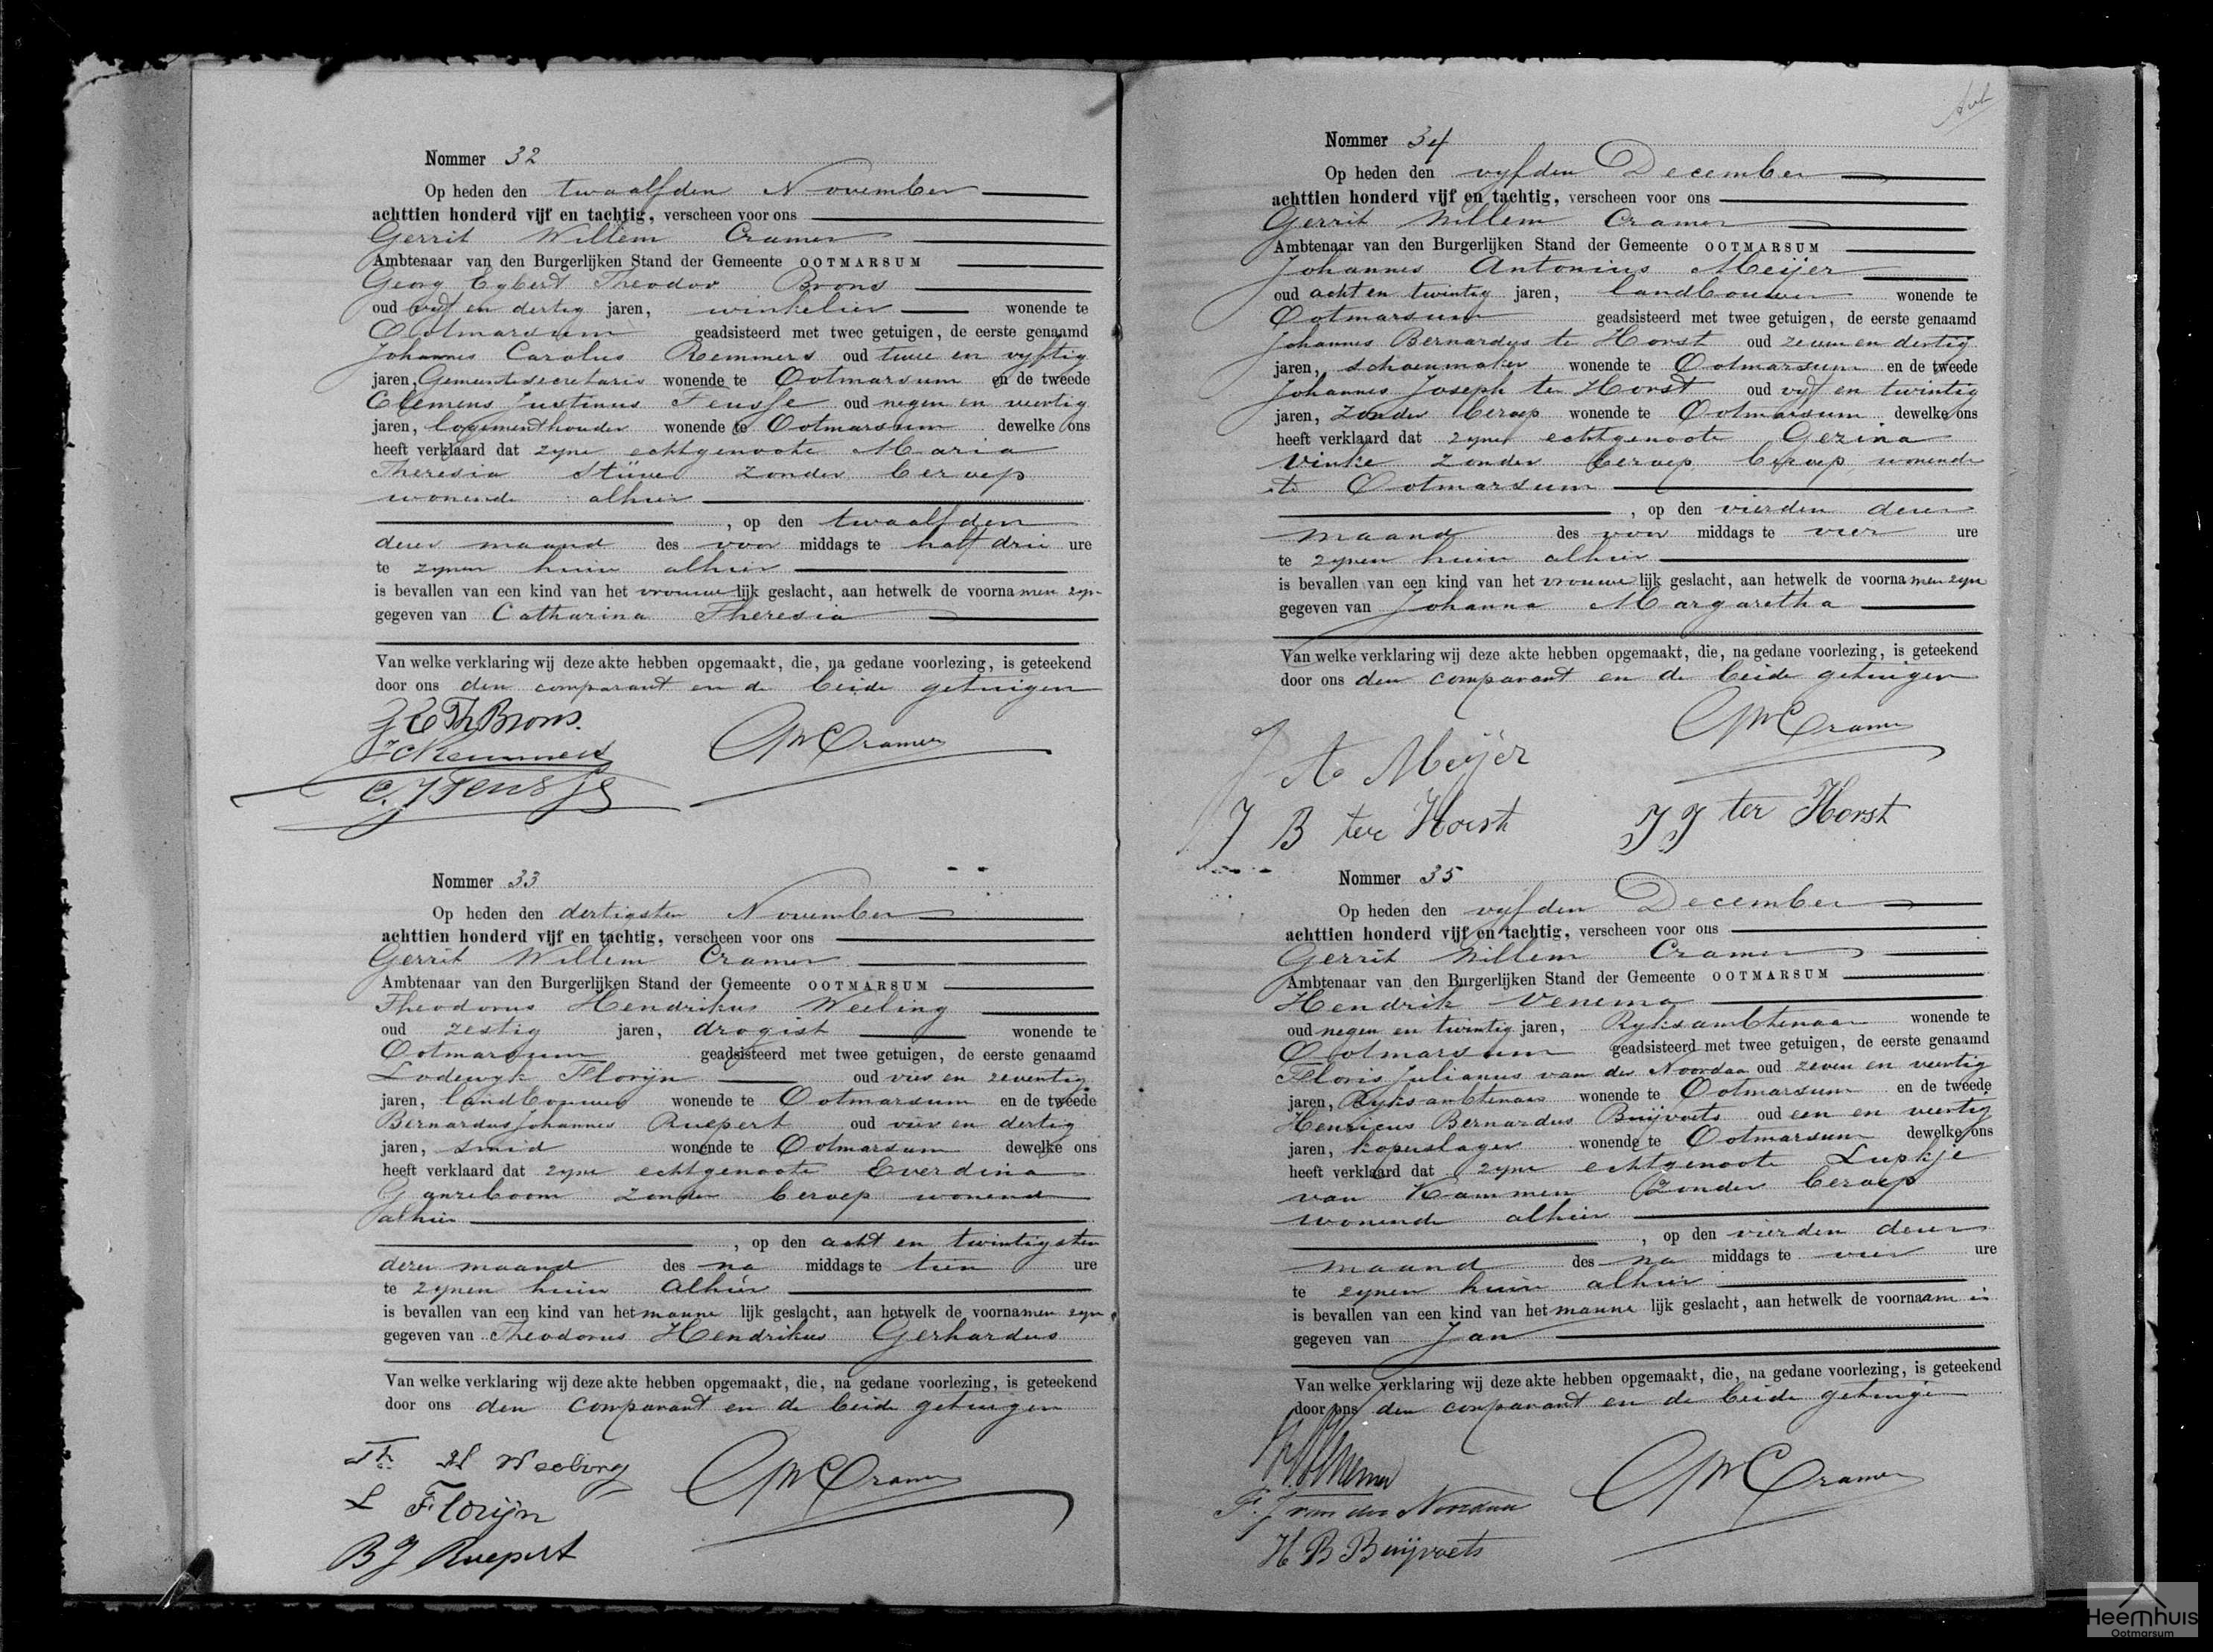 Nommer 32
Op heden den twaalfden November
achttien honderd vijf en tachtig, verscheen voor ons
Gerrit Willem Cramer
Ambtenaar van den Burgerlijken Stand der Gemeente OOTMARSUM
Georg Egbert Theodor Brons
oud vijf en dertig jaren, winkelier wonende te
Ootmarsum geadsisteerd met twee getuigen, de eerste genaamd
Johannes Carolus Remmers oud twee en vyftig
jaren, Gemeentesecretaris wonende te Ootmarsum en de tweede
Clemens Justinus Feusse oud negen en veertig
jaren, logementhouder wonende te Ootmarsum dewelke ons
heeft verklaard dat zyne echtgenoote Maria
Theresia Stüve zonder beroep
wonende alhier
, op den twaalfden
dezer maand des voor middags te half drie ure
te zynen huize alhier
is bevallen van een kind van het vrouwelijk geslacht, aan hetwelk de voornamen zyn
gegeven van Catharina Theresia
Van welke verklaring wij deze akte hebben opgemaakt, die, na gedane voorlezing, is geteekend
door ons den comparant en de beide getuigen
G E Th Brons.
J C Remmers GW Cramer
C. J Feusse
Nommer 33
Op heden den dertigsten November
achttien honderd vijf en tachtig, verscheen voor ons
Gerrit Willem Cramer
Ambtenaar van den Burgerlijken Stand der Gemeente OOTMARSUM
Theodorus Hendrikus Weeling
oud zestig jaren, drogist wonende te
Ootmarsum geadsisteerd met twee getuigen, de eerste genaamd
Lodewyk Florijn oud vier en zeventig
jaren, landbouwer wonende te Ootmarsum en de tweede
Bernardus Johannes Ruepert oud vier en dertig
jaren, smid wonende te Ootmarsum dewelke ons
heeft verklaard dat zyne echtgenoote Everdina
Ganzeboom zonder beroep wonend
alhier
, op den acht en twintigsten
dezer maand des na middags te tien ure
te zynen huize alhier
is bevallen van een kind van het mannelijk geslacht, aan hetwelk de voornamen zyn
gegeven van Theodorus Hendrikus Gerhardus
Van welke verklaring wij deze akte hebben opgemaakt, die, na gedane voorlezing, is geteekend
door ons den comparant en de beide getuigen
Th H Weeling GW Cramer
L Florijn
B J Ruepert
Nommer 34
Op heden den vyfden December
achttien honderd vijf en tachtig, verscheen voor ons
Gerrit Willem Cramer
Ambtenaar van den Burgerlijken Stand der Gemeente OOTMARSUM
Johannes Antonius Meijer
oud acht en twintig jaren, landbouwer wonende te
Ootmarsum geadsisteerd met twee getuigen, de eerste genaamd
Johannes Bernardus te Horst oud zeven en dertig
jaren, schoenmaker wonende te Ootmarsum en de tweede
Johannes Joseph ter Horst oud vyf en twintig
jaren, zonder beroep wonende te Ootmarsum dewelke ons
heeft verklaard dat zyne echtgenoote Gezina
Vinke zonder beroep beroep wonende
te Ootmarsum
, op den vierden dezer
maand des voor middags te vier ure
te zynen huize alhier
is bevallen van een kind van het vrouwelijk geslacht, aan hetwelk de voornamen zyn
gegeven van Johanna Margaretha
Van welke verklaring wij deze akte hebben opgemaakt, die, na gedane voorlezing, is geteekend
door ons den comparant en de beide getuigen
GW Cramer
J A Meijer
J B ter Horst J J ter Horst
Nommer 35
Op heden den vyfden December
achttien honderd vijf en tachtig, verscheen voor ons
Gerrit Willem Cramer
Ambtenaar van den Burgerlijken Stand der Gemeente OOTMARSUM
Hendrik Venema
oud negen en twintig jaren, Ryksambtenaar wonende te
Ootmarsum geadsisteerd met twee getuigen, de eerste genaamd
Floris Julianus van der Noordaa oud zeven en veertig
jaren, Ryksambtenaar wonende te Ootmarsum en de tweede
Henricus Bernardus Buijvoets oud een en veertig
jaren, koperslager wonende te Ootmarsum dewelke ons
heeft verklaard dat zyne echtgenoote Lupkje
van Kammen zonder beroep
wonende alhier
, op den vierden dezer
maand des na middags te vier ure
te zynen huize alhier
is bevallen van een kind van het mannelijk geslacht, aan hetwelk de voornaam is
gegeven van Jan
Van welke verklaring wij deze akte hebben opgemaakt, die, na gedane voorlezing, is geteekend
door ons den comparant en de beide getuigen
H. Venema GW Cramer
F. J van der Noordaa
H B Buijvoets
Heemhuis
Ootmarsum